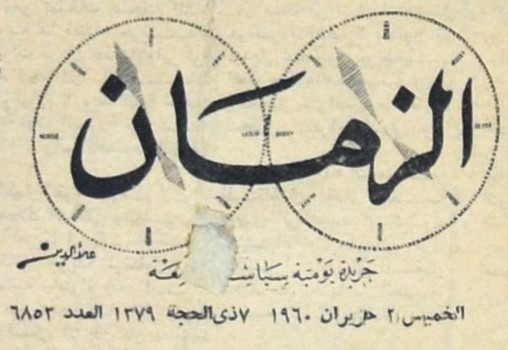 الزمان
علاءالدين
جريدة يومية سياسية
الخميس ٢ حزيران ١٩٦٠ ٧ ذى الحجة ١٣٧٩ العدد ٦٨٥٣